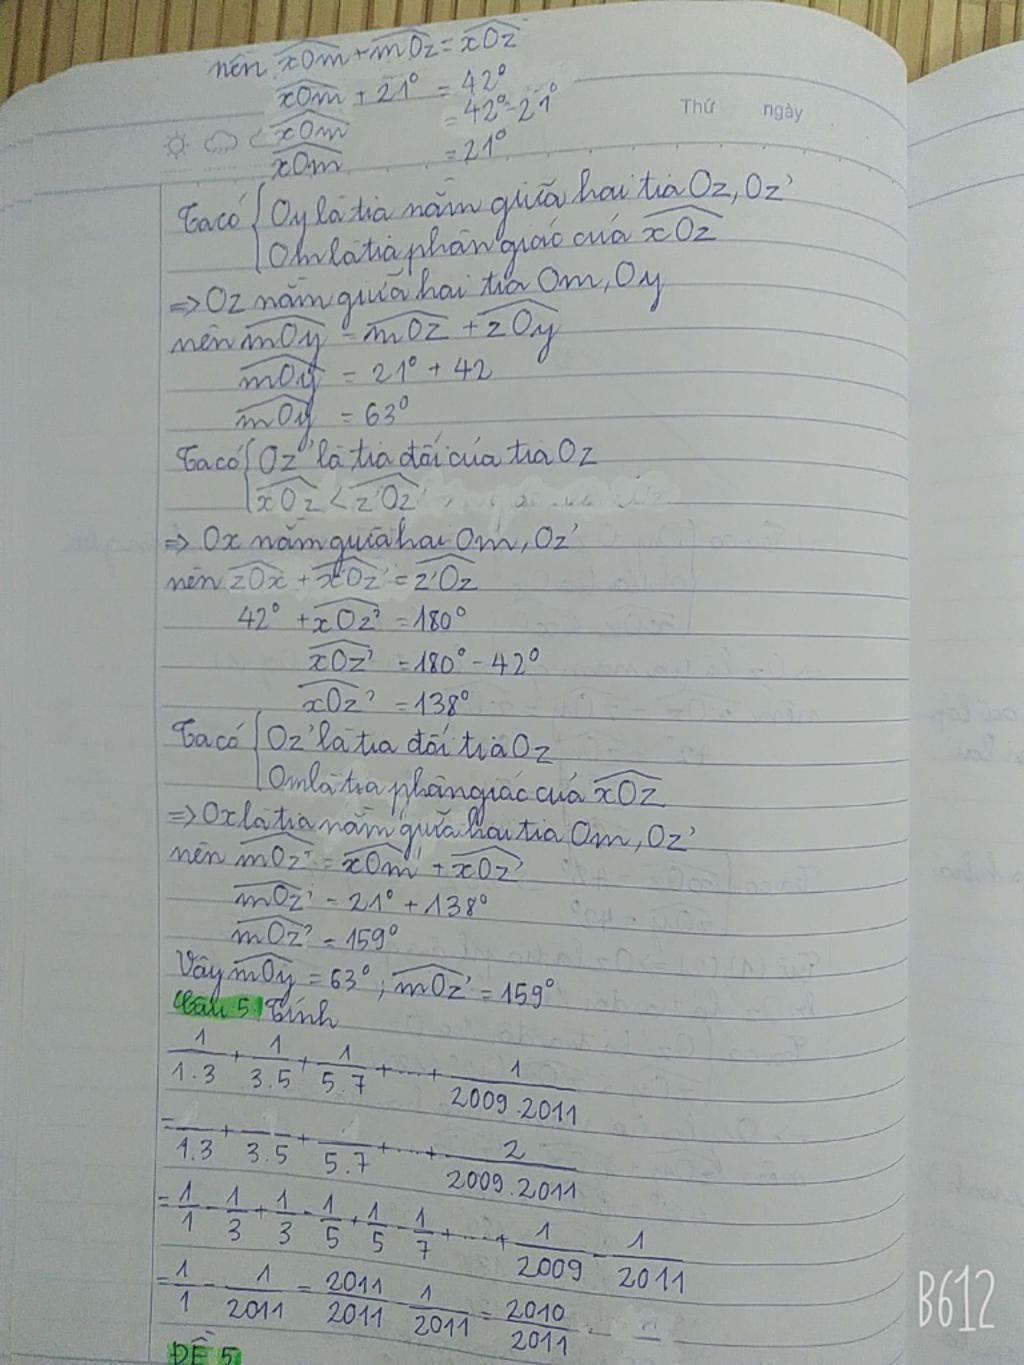 nên xOm + mOz = xOz
xOm + 21° = 42°
xOm = 42° - 21°
xOm = 21°
Thứ ngày
Ta có { Oy là tia nằm giữa hai tia Oz, Oz'
Om là tia phân giác của xOz
=> Oz nằm giữa hai tia Om, Oy
nên mOy = mOz + zOy
mOy = 21° + 42
mOy = 63°
Ta có { Oz' là tia đối của tia Oz
xOz < z'Oz
=> Ox nằm giữa hai Om, Oz'
nên zOx + xOz' = z'Oz
42° + xOz' = 180°
xOz' = 180° - 42°
xOz' = 138°
Ta có { Oz' là tia đối tia Oz
Om là tia phân giác của xOz
=> Ox là tia nằm giữa hai tia Om, Oz'
nên mOz' = xOm + xOz'
mOz' = 21° + 138°
mOz' = 159°
Vậy mOy = 63°; mOz' = 159°
Câu 5: Tính
1/1.3 + 1/3.5 + 1/5.7 + ... + 1/2009.2011
= /1.3 + /3.5 + /5.7 + ... + 2/2009.2011
= 1/1 - 1/3 + 1/3 - 1/5 + 1/5 - 1/7 + ... + 1/2009 - 1/2011
= 1/1 - 1/2011 = 2011/2011 - 1/2011 = 2010/2011
ĐỀ 5
B612